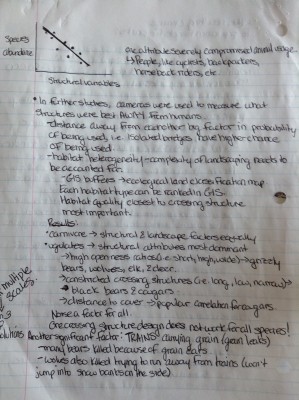 Species
abundance
Structural variables
one attribute severely compromised animal usage.
↳ People, like cyclists, backpackers,
horseback riders, etc
• In further studies, cameras were used to measure what
structures were best AWAY from humans.
-distance away from another big factor in probability
of being used. i.e. Isolated bridges have higher chance
of being used.
-habitat heterogeneity - complexity of landscaping needs to
be accounted for.
GIS buffers → ecological land classification map
Each habitat type can be ranked in GIS.
Habitat quality closest to crossing structure
most important.
Results:
carnivore → structural & landscape factors equally
ungulates → structural attributes most dominant
→ high openness ratios (i.e. short, high, wide) → grizzly
bears, wolves, elk, & deer.
→ constricted crossing structures (i.e. long, low, narrow) →
black bears & cougars
→ distance to cover → popular correlation for cougars.
Noise a factor for all.
One crossing structure design does not work for all species!
multiple
scales:
Another significant factor: TRAINS! carrying grain (grain leaks)
-many bears killed because of grain eats
-wolves also killed trying to run away from trains (won't
jump into snow banks on the side)